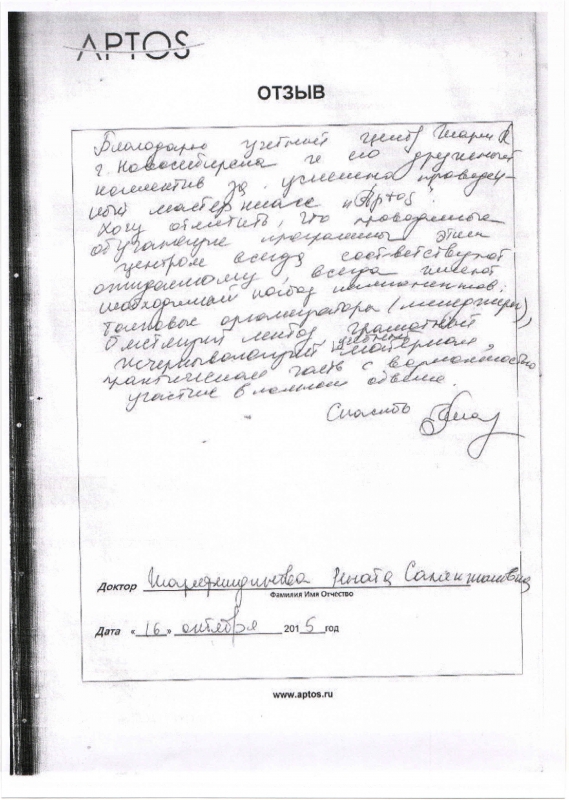 APTOS
ОТЗЫВ
Благодарю учебный центр
г. Новосибирска и его дружный
коллектив за успешно проведен-
ный мастер класс "Aptos".
Хочу отметить, что проводимые
обучающие программы этим
центром всегда соответствуют
ожидаемому, всегда имеют
необходимый набор компонентов:
толковые организаторы (менеджеры),
блестящий лектор, грамотный
исчерпывающий учебный материал,
практическая часть с возможностью
участие в полном объеме.
Спасибо
Доктор Рената
Фамилия Имя Отчество
Дата « 16 » октября 2015 год
www.aptos.ru